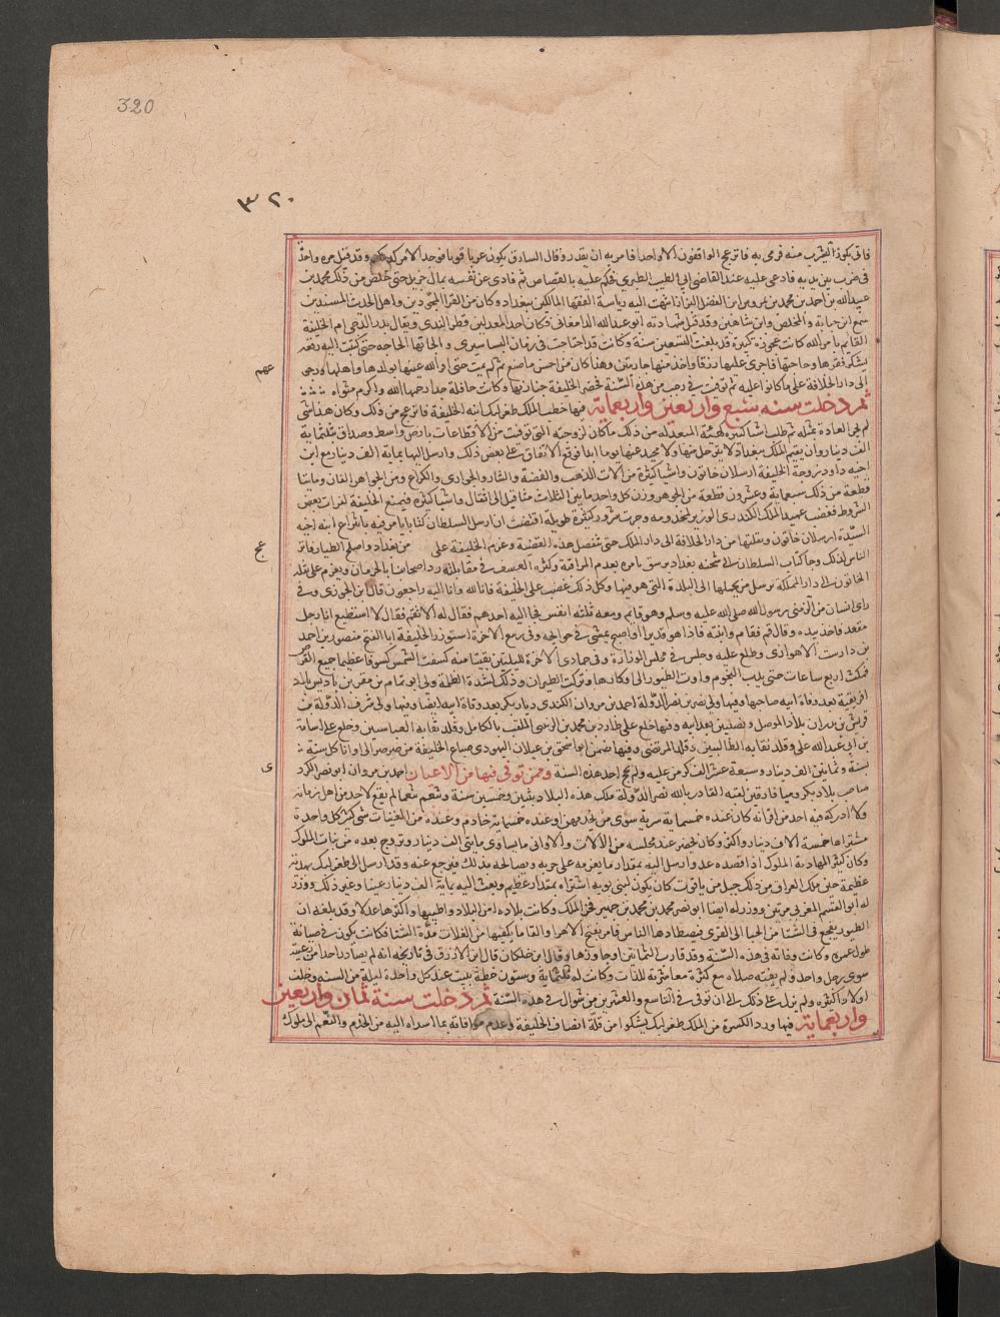 320
٣٢٠
فاتى بكوز ليشرب منه فرمى به فانزعج الواقفون الا واحدا فامر به ان يقرر وقال السارق يكون جريا قويا فوجد الامر كذلك وقد قتل مرة واحدا
في ضرب بين يديه فادعى عليه عند القاضي ابي الطيب الطبري فحكم عليه بالقصاص ثم فادى عن نفسه بمال جزيل حتى خلص من ذلك محمد بن
عبيد الله بن احمد بن محمد بن عمروس ابو الفضل البزار انتهت اليه رياسة الفقها المالكيين ببغداد وكان من القرا المجودين واهل الحديث المسندين
سمع ابن حبابة والمخلص وابن شاهين وقد قبل شهادته ابو عبد الله الدامغاني فكان احد المعدلين قطر الندى ويقال بدر الدجى ام الخليفة
القايم بامر الله كانت عجوزة كبيرة قد بلغت التسعين سنة وكانت قد احتاجت في زمان البساسيري والجاتها الحاجة حتى كتبت اليه رقعة
يشكر فقرها وحاجتها فاجرى عليها رزقا واخدمها جاريتين وهذا كان من احسن ما صنع ثم لم يمت حتى اراه الله عينها بولدها واهلها ورجي
الى دار الخلافة على ما كانوا عليه ثم توفيت في رجب من هذه السنة فحضر الخليفة جنازتها وكانت حافلة جدا رحمها الله واكرم مثواه
ثم دخلت سنه سبع واربعين واربعماية فيها خطب الملك طغرلبك ابنة الخليفة فانزعج من ذلك وكان هذا شى
لم تجر العادة بمثله ثم طلب اشيا كثيرة كهيئة المبعد له من ذلك ما كان لزوجته التي توفيت من الاقطاعات بارض واسط وصداق ثلثماية
الف دينار وان يقيم الملك ببغداد لا يترحل منها ولا يحيد عنها يوما ابدا فوقع الاتفاق على بعض ذلك وارسل اليها بماية الف دينار مع ابنة
اخيه داود زوجة الخليفة ارسلان خاتون واشيا كثيرة من آلات الذهب والفضة والنثار والجواري والكراع ومن الجواهر الفان ومايتا
قطعة من ذلك سبعماية وعشرون قطعة من الجوهر وزن كل واحد ما بين الثلاث مثاقيل الى مثقال واشيا كثيرة فتمنع الخليفة لفوات بعض
الشروط فغضب عميد الملك الكندري الوزير لمخدومه وجرت شرور كثيرة طويلة اقتضت ان ارسل السلطان كتابا يامر فيه بانتزاع ابنة اخيه
السيدة ارسلان خاتون ونقلها من دار الخلافة الى دار الملك حتى تنفصل هذه القضية وعزم الخليفة على من بغداد واصلح الطيار فانزعج
الناس لذلك وجا كتاب السلطان الى شحنة بغداد برسق يامره بعدم المراقبة وكثرة العسف في مقابلة رد اصحابنا بالحرمان ويعزم على نقله
الخاتون الى دار المملكة ترسل من يحملها الى البلدة التي هو فيها وكل ذلك غضب على الخليفة فانا لله وانا اليه راجعون قال ابن الجوزي وفي
راى انسان من الزمنى رسول الله صلى الله عليه وسلم وهو قايم ومعه ثلثة انفس فجا اليه احدهم فقال له الا تقم فقال لا استطيع انا رجل
مقعد فاخذ بيده وقال قم فقام وانتبه فاذا هو قد برا واصبح يمشي في حوايجه وفي ربيع الاخرة استوزر الخليفة ابا الفتح منصور بن احمد
بن دارست الاهوازي وخلع عليه وجلس في مجلس الوزارة وفي جمادى الاخرة لليلتين بقيتا منه كسفت الشمس كسوفا عظيما جميع القرص
فمكث اربع ساعات حتى بدت النجوم واوت الطيور الى اوكارها وتركت الطيران وذلك لشدة الظلمة ولي ابو تمام بن مقرن بن باديس بلاد
افريقية بعد وفاة ابيه صاحبها وفيها ولي نصر بن نصر الدولة احمد بن مروان الكندى ديار بكر بعد وفاة ابيه ايضا وفيها ولي شرف الدولة بن
قريش بن بدران بلاد الموصل ونصيبين بعد ابيه وفيها خلع على طراد بن محمد بن الرضى الملقب بالكامل وقلد نقابة العباسيين وخلع على اسامة
بن ابي عبد الله علي وقلد نقابة الطالبيين ذقلد المرتضي وفيها ضمن ابو اسحق بن عيلان اليهودي ضياع الخليفة من صرصر الى اوانا كل سنة
بستة وثمانين الف دينار وسبعة عشر الف كر من عليه ولم يحج احد هذه السنة وممن توفى فيها من الاعيان احمد بن مروان ابو نصر الكردي
صاحب بلاد بكر وميافارقين لقبه القادر بالله نصر الدولة ملك هذه البلاد ثنتين وخمسين سنة وتنعم تنعما لم يقع لاحد من اهل زمانه
ولا ادركه فيه احد من اقرانه كان عنده خمسماية سرية سوى من يخدمهن وعنده خمسماية خادم وعنده من المغنيات شي كثير كل واحدة
مشتراها خمسة الاف دينار واكثر وكان يحضر عند مجلسه من الالات والاواني ما يساوي مايتى الف دينار وتزوج بعده من بنات الملوك
وكان كثير المهادنة للملوك اذا قصده عدو ارسل اليه بمقدار ما يغرمه على حربه ويصالحه بذلك فيرجع عنه وقد ارسل الى طغرلبك بهدية
عظيمة حين ملك العراق من ذلك حبل من ياقوت كان يكون لبنى بويه اشتراه بمقدار عظيم وبعث اليه بماية الف دينار عينا وغير ذلك ووزر
له ابو القسم المغربي مرتين ووزر له ايضا ابو نصر محمد بن محمد بن جهير فخر الملك وكانت بلاده امن البلاد واطيبها واكثرها عدلا وقد بلغه ان
الطيور تنجع في الشتا من الجبا الى القرى فيصطادها الناس فامر بفتح الاهرا والقا ما يكفيها من الغلات مدة الشتا فكانت يكون في ضيافة
طول عمره وكانت وفاته في هذه السنة وقد قارب الثمانين او جاوزها وقال ابن خلكان قال ابن الازرق في تاريخه انه لم يصادر احدا من رعيته
سوى رجل واحد ولم يفته صلاة مع كثرة معاشرته للذات وكانت له ثلثماية وستون حظية يبيت عند كل واحدة ليلة من السنة وخلف
اولادا كثيرة ولم يزل على ذلك الى ان توفى في التاسع والعشرين من شوال في هذه السنة ثم دخلت سنة ثمان واربعين
واربعماية فيها ورد الكسرة من الملك طغرلبك يشكوا من قلة انصاف الخليفة وعدم موافاته بما اسداه اليه من الخدم والنعم الى ملوك